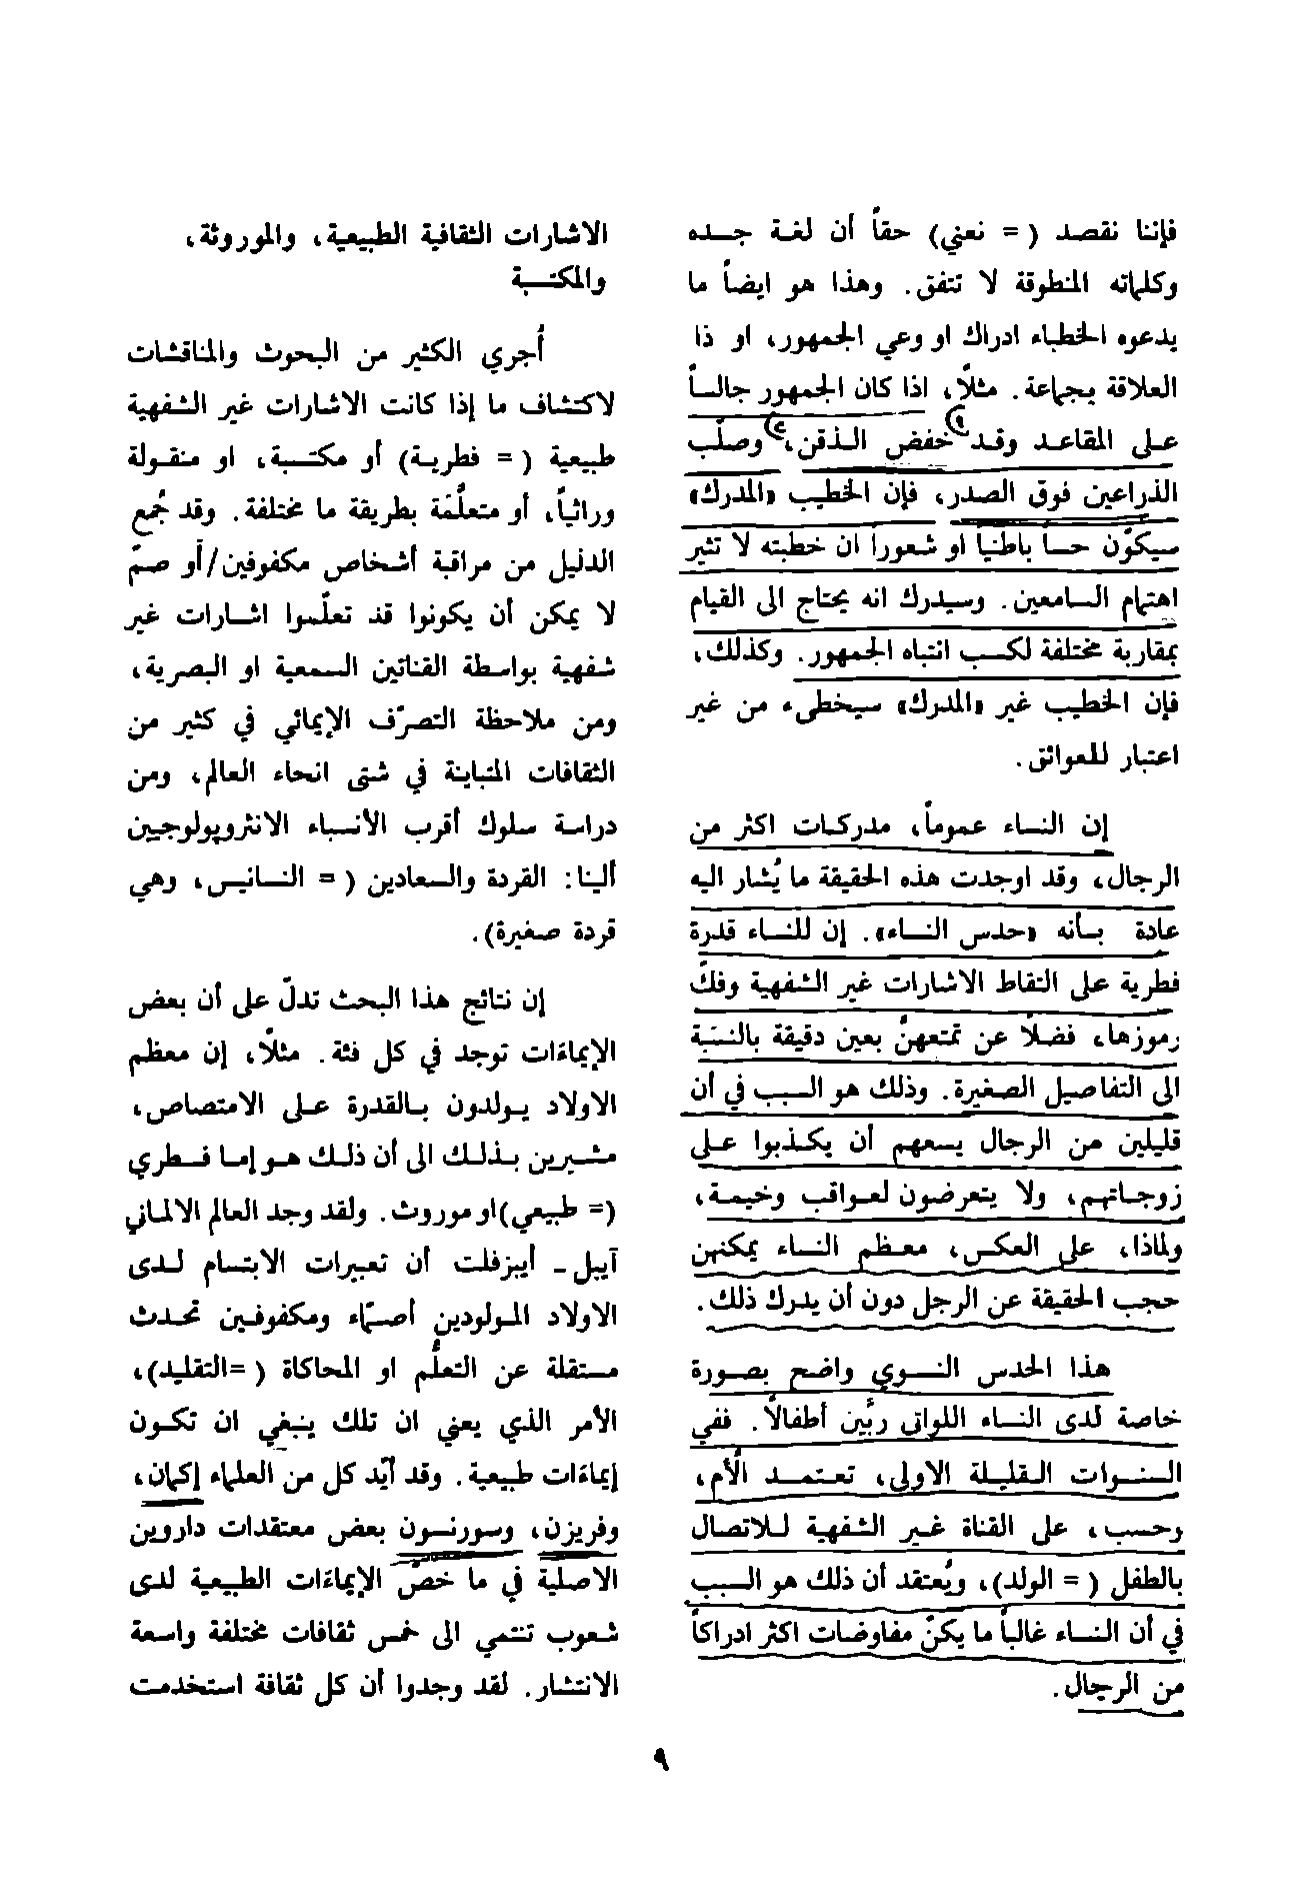 فإننا نقصد ( = نعني) حقاً أن لغة جسده
وكلماته المنطوقة لا تتفق. وهذا هو ايضاً ما
يدعوه الخطباء ادراك او وعي الجمهور، او ذا
العلاقة بجماعة. مثلًا، اذا كان الجمهور جالساً
على المقاعد وقد خفض الذقن، وصلّب
الذراعين فوق الصدر، فإن الخطيب «المدرك»
سيكوّن حساً باطنياً او شعوراً ان خطبته لا تثير
اهتمام السامعين. وسيدرك انه يحتاج الى القيام
بمقاربة مختلفة لكسب انتباه الجمهور. وكذلك،
فإن الخطيب غير «المدرك» سيخطىء من غير
اعتبار للعوائق.
إن النساء عموماً، مدركات اكثر من
الرجال، وقد اوجدت هذه الحقيقة ما يُشار اليه
عادة بأنه «حدس النساء». إن للنساء قدرة
فطرية على التقاط الاشارات غير الشفهية وفكّ
رموزها، فضلًا عن تمتعهنّ بعين دقيقة بالنسبة
الى التفاصيل الصغيرة. وذلك هو السبب في أن
قليلين من الرجال يسعهم أن يكذبوا على
زوجاتهم، ولا يتعرضون لعواقب وخيمة،
ولماذا، على العكس، معظم النساء يمكنهن
حجب الحقيقة عن الرجل دون أن يدرك ذلك.
هذا الحدس النسوي واضح بصورة
خاصة لدى النساء اللواتي ربّين أطفالًا. ففي
السنوات القليلة الاولى، تعتمد الأم،
وحسب، على القناة غير الشفهية للاتصال
بالطفل ( = الولد)، ويُعتقد أن ذلك هو السبب
في أن النساء غالباً ما يكنّ مفاوضات اكثر ادراكاً
من الرجال.
الاشارات الثقافية الطبيعية، والموروثة،
والمكتسبة
أُجري الكثير من البحوث والمناقشات
لاكتشاف ما إذا كانت الاشارات غير الشفهية
طبيعية ( = فطرية) أو مكتسبة، او منقولة
وراثياً، أو متعلَّمَة بطريقة ما مختلفة. وقد جُمع
الدليل من مراقبة أشخاص مكفوفين/أو صمّ
لا يمكن أن يكونوا قد تعلّموا اشارات غير
شفهية بواسطة القناتين السمعية او البصرية،
ومن ملاحظة التصرّف الإيمائي في كثير من
الثقافات المتباينة في شتى انحاء العالم، ومن
دراسة سلوك أقرب الأنسباء الانثروپولوجيين
ألينا: القردة والسعادين ( = النسانيس، وهي
قردة صغيرة).
إن نتائج هذا البحث تدلّ على أن بعض
الإيماءَات توجد في كل فئة. مثلًا، إن معظم
الاولاد يولدون بالقدرة على الامتصاص،
مشيرين بذلك الى أن ذلك هو إما فطري
(= طبيعي) او موروث. ولقد وجد العالم الالماني
آيبل - أيبزفلت أن تعبيرات الابتسام لدى
الاولاد المولودين أصمّاء ومكفوفين تحدث
مستقلة عن التعلُّم او المحاكاة ( =التقليد)،
الأمر الذي يعني ان تلك ينبغي ان تكون
إيماءَات طبيعية. وقد أيّد كل من العلماء إكمان،
وفريزن، وسورنسون بعض معتقدات داروين
الاصلية في ما خصّ الإيماءَات الطبيعية لدى
شعوب تنتمي الى خمس ثقافات مختلفة واسعة
الانتشار. لقد وجدوا أن كل ثقافة استخدمت
٩